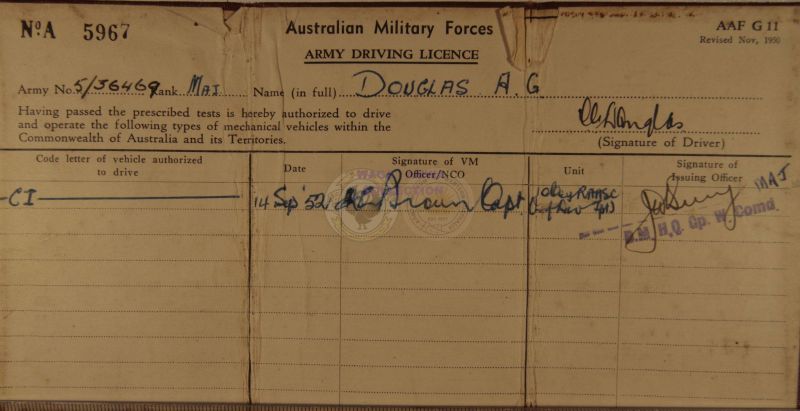 No. A 5967
Australian Military Forces
AAF G 11
Revised Nov, 1950
ARMY DRIVING LICENCE
Army No. 5/36469 Rank MAJ Name (in full) DOUGLAS A. G
Having passed the prescribed tests is hereby authorized to drive
and operate the following types of mechanical vehicles within the
Commonwealth of Australia and its Territories.
AG Douglas
(Signature of Driver)
Code letter of vehicle authorized
to drive
Date
Signature of VM
Officer/NCO
Unit
Signature of
Issuing Officer
CI
14 Sep '52
Brown Capt
Coy RAASC
MAJ
B.M. H.Q. Gp. W. Comd